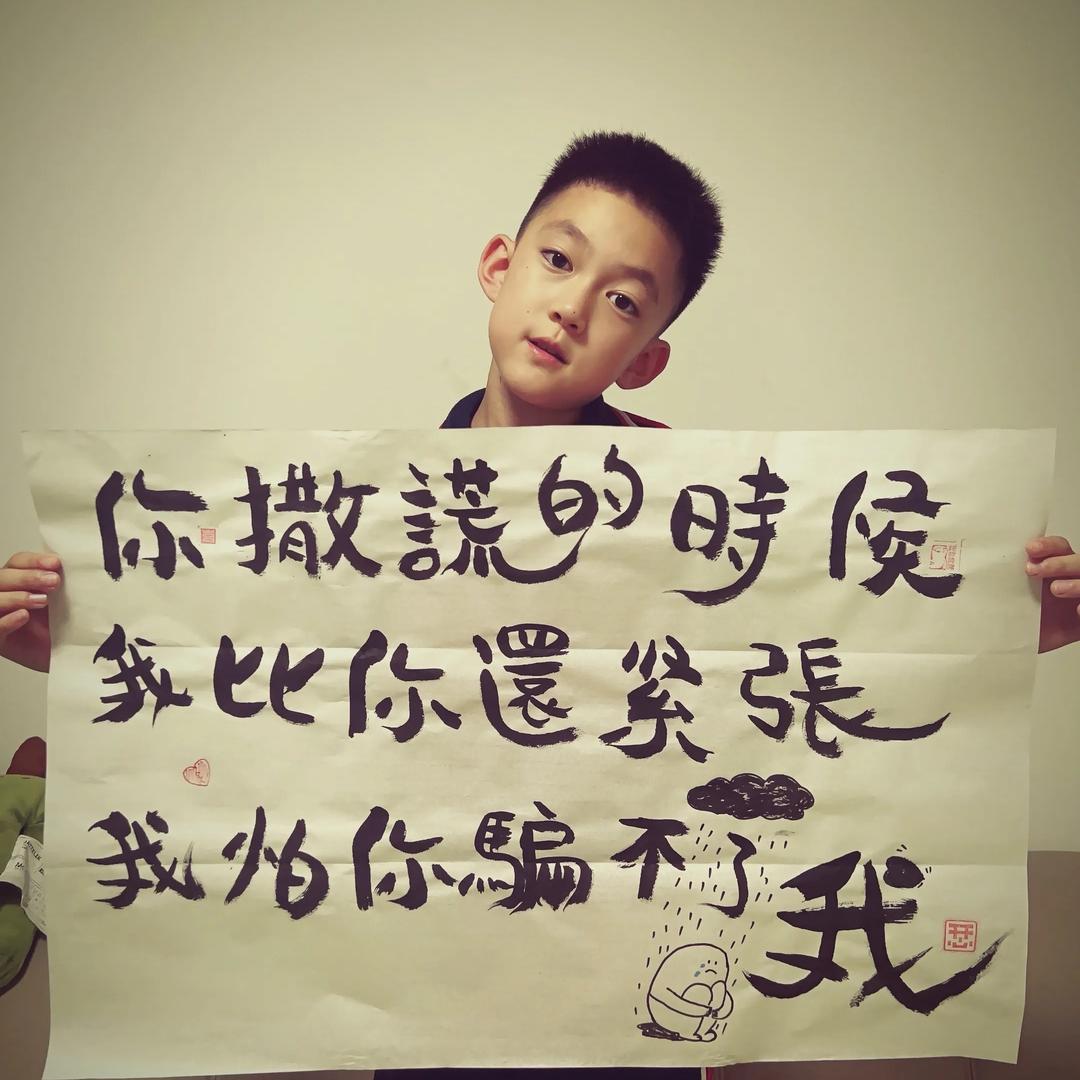 你撒謊的時候
我比你還緊張
我怕你騙不了我